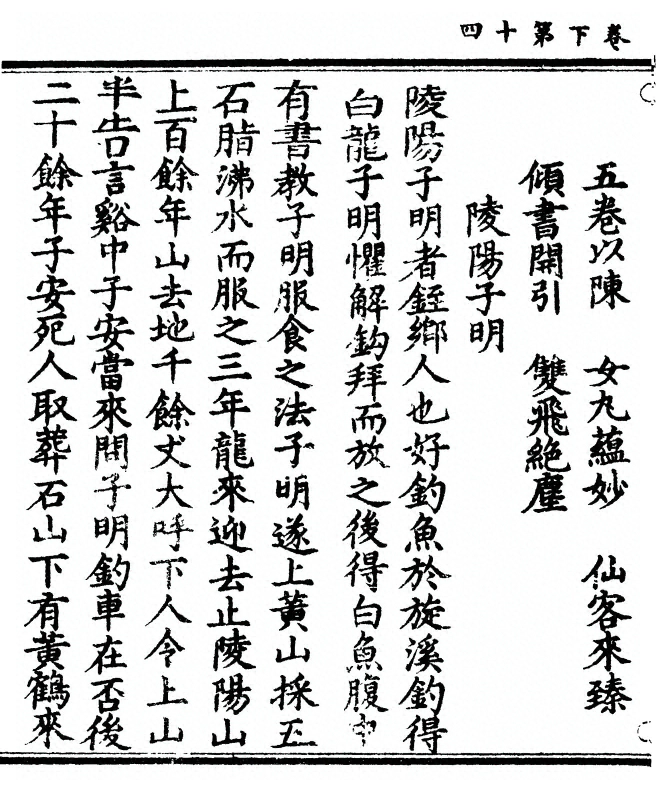 卷下第十四
五卷以陳　女丸蘊妙　仙客來臻
傾書開引　雙飛絕塵
陵陽子明
陵陽子明者銍鄉人也好釣魚於旋溪釣得
白龍子明懼解鈎拜而放之後得白魚腹中
有書教子明服食之法子明遂上黃山採五
石脂沸水而服之三年龍來迎去止陵陽山
上百餘年山去地千餘丈大呼下人令上山
半告言谿中子安當來問子明釣車在否後
二十餘年子安死人取葬石山下有黃鶴來